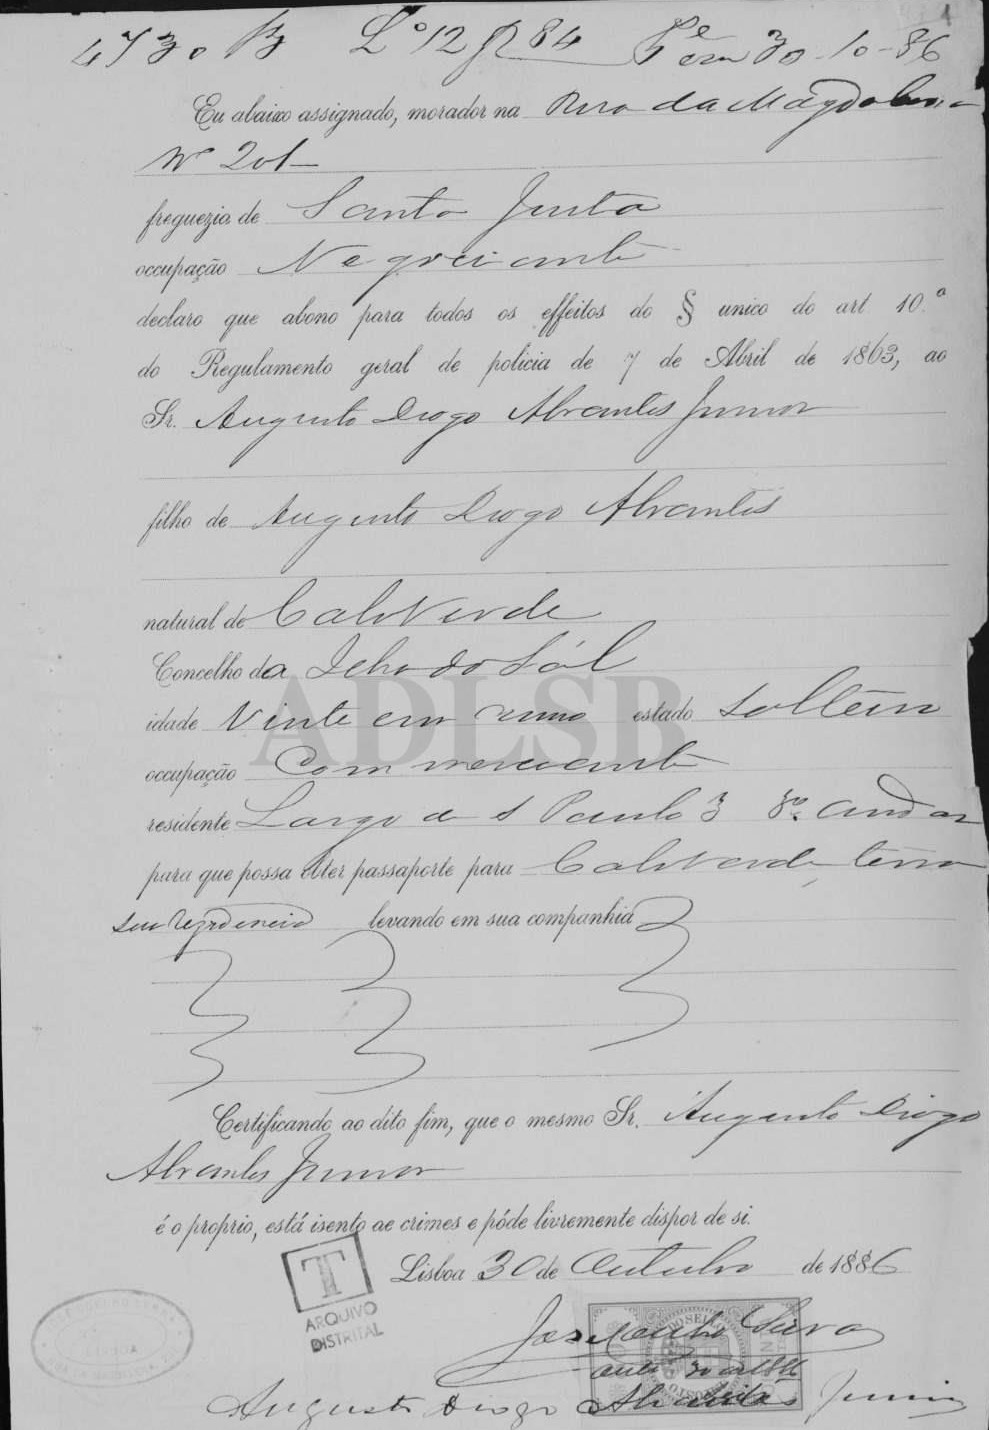 4730 B L.º 12 f 84 Pe em 30-10-86
1
Eu abaixo assignado, morador na Rua da Magdalena
Nº 201
freguezia de Santa Justa
occupação Negociante
declaro que abono para todos os effeitos do § unico do art. 10.º
do Regulamento geral de policia de 7 de Abril de 1863, ao
Sr. Augusto Diogo Abrantes Junior
filho de Augusto Diogo Abrantes
natural de CaboVerde
Concelho da Ilha do Sál
idade Vinte em anno estado Solteiro
occupação Commerciante
residente Largo de S Paulo 3 3º andar
para que possa obter passaporte para CaboVerde, terra
sua residencia levando em sua companhia
ADLSB
Certificando ao dito fim, que o mesmo Sr. Augusto Diogo
Abrantes Junior
é o proprio, está isento de crimes e póde livremente dispor de si.
Lisboa 30 de Outubro de 1886
T
ARQUIVO
DISTRITAL
DO SELLO
Silva
Augusto Diogo Abrantes Junior